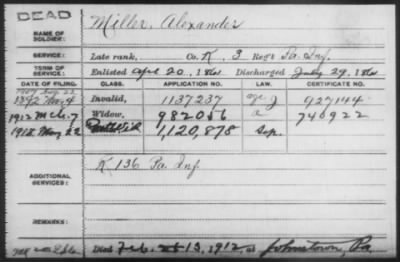 DEAD
NAME OF SOLDIER: Miller, Alexander
SERVICE: Late rank, Co. K, 3 Reg't Pa. Inf.
TERM OF SERVICE: Enlisted Apl 20, 1861 Discharged July 29, 1861
DATE OF FILING. CLASS. APPLICATION NO. LAW. CERTIFICATE NO.
1892 Nov. 4 Invalid, 1137237 927144
1912 Mch. 7 Widow, 982056 a 740922
1918 May 22 1,120,878 Sep.
ADDITIONAL SERVICES: K 136 Pa. Inf.
REMARKS:
Died Feb. 13, 1912, at Johnstown, Pa.